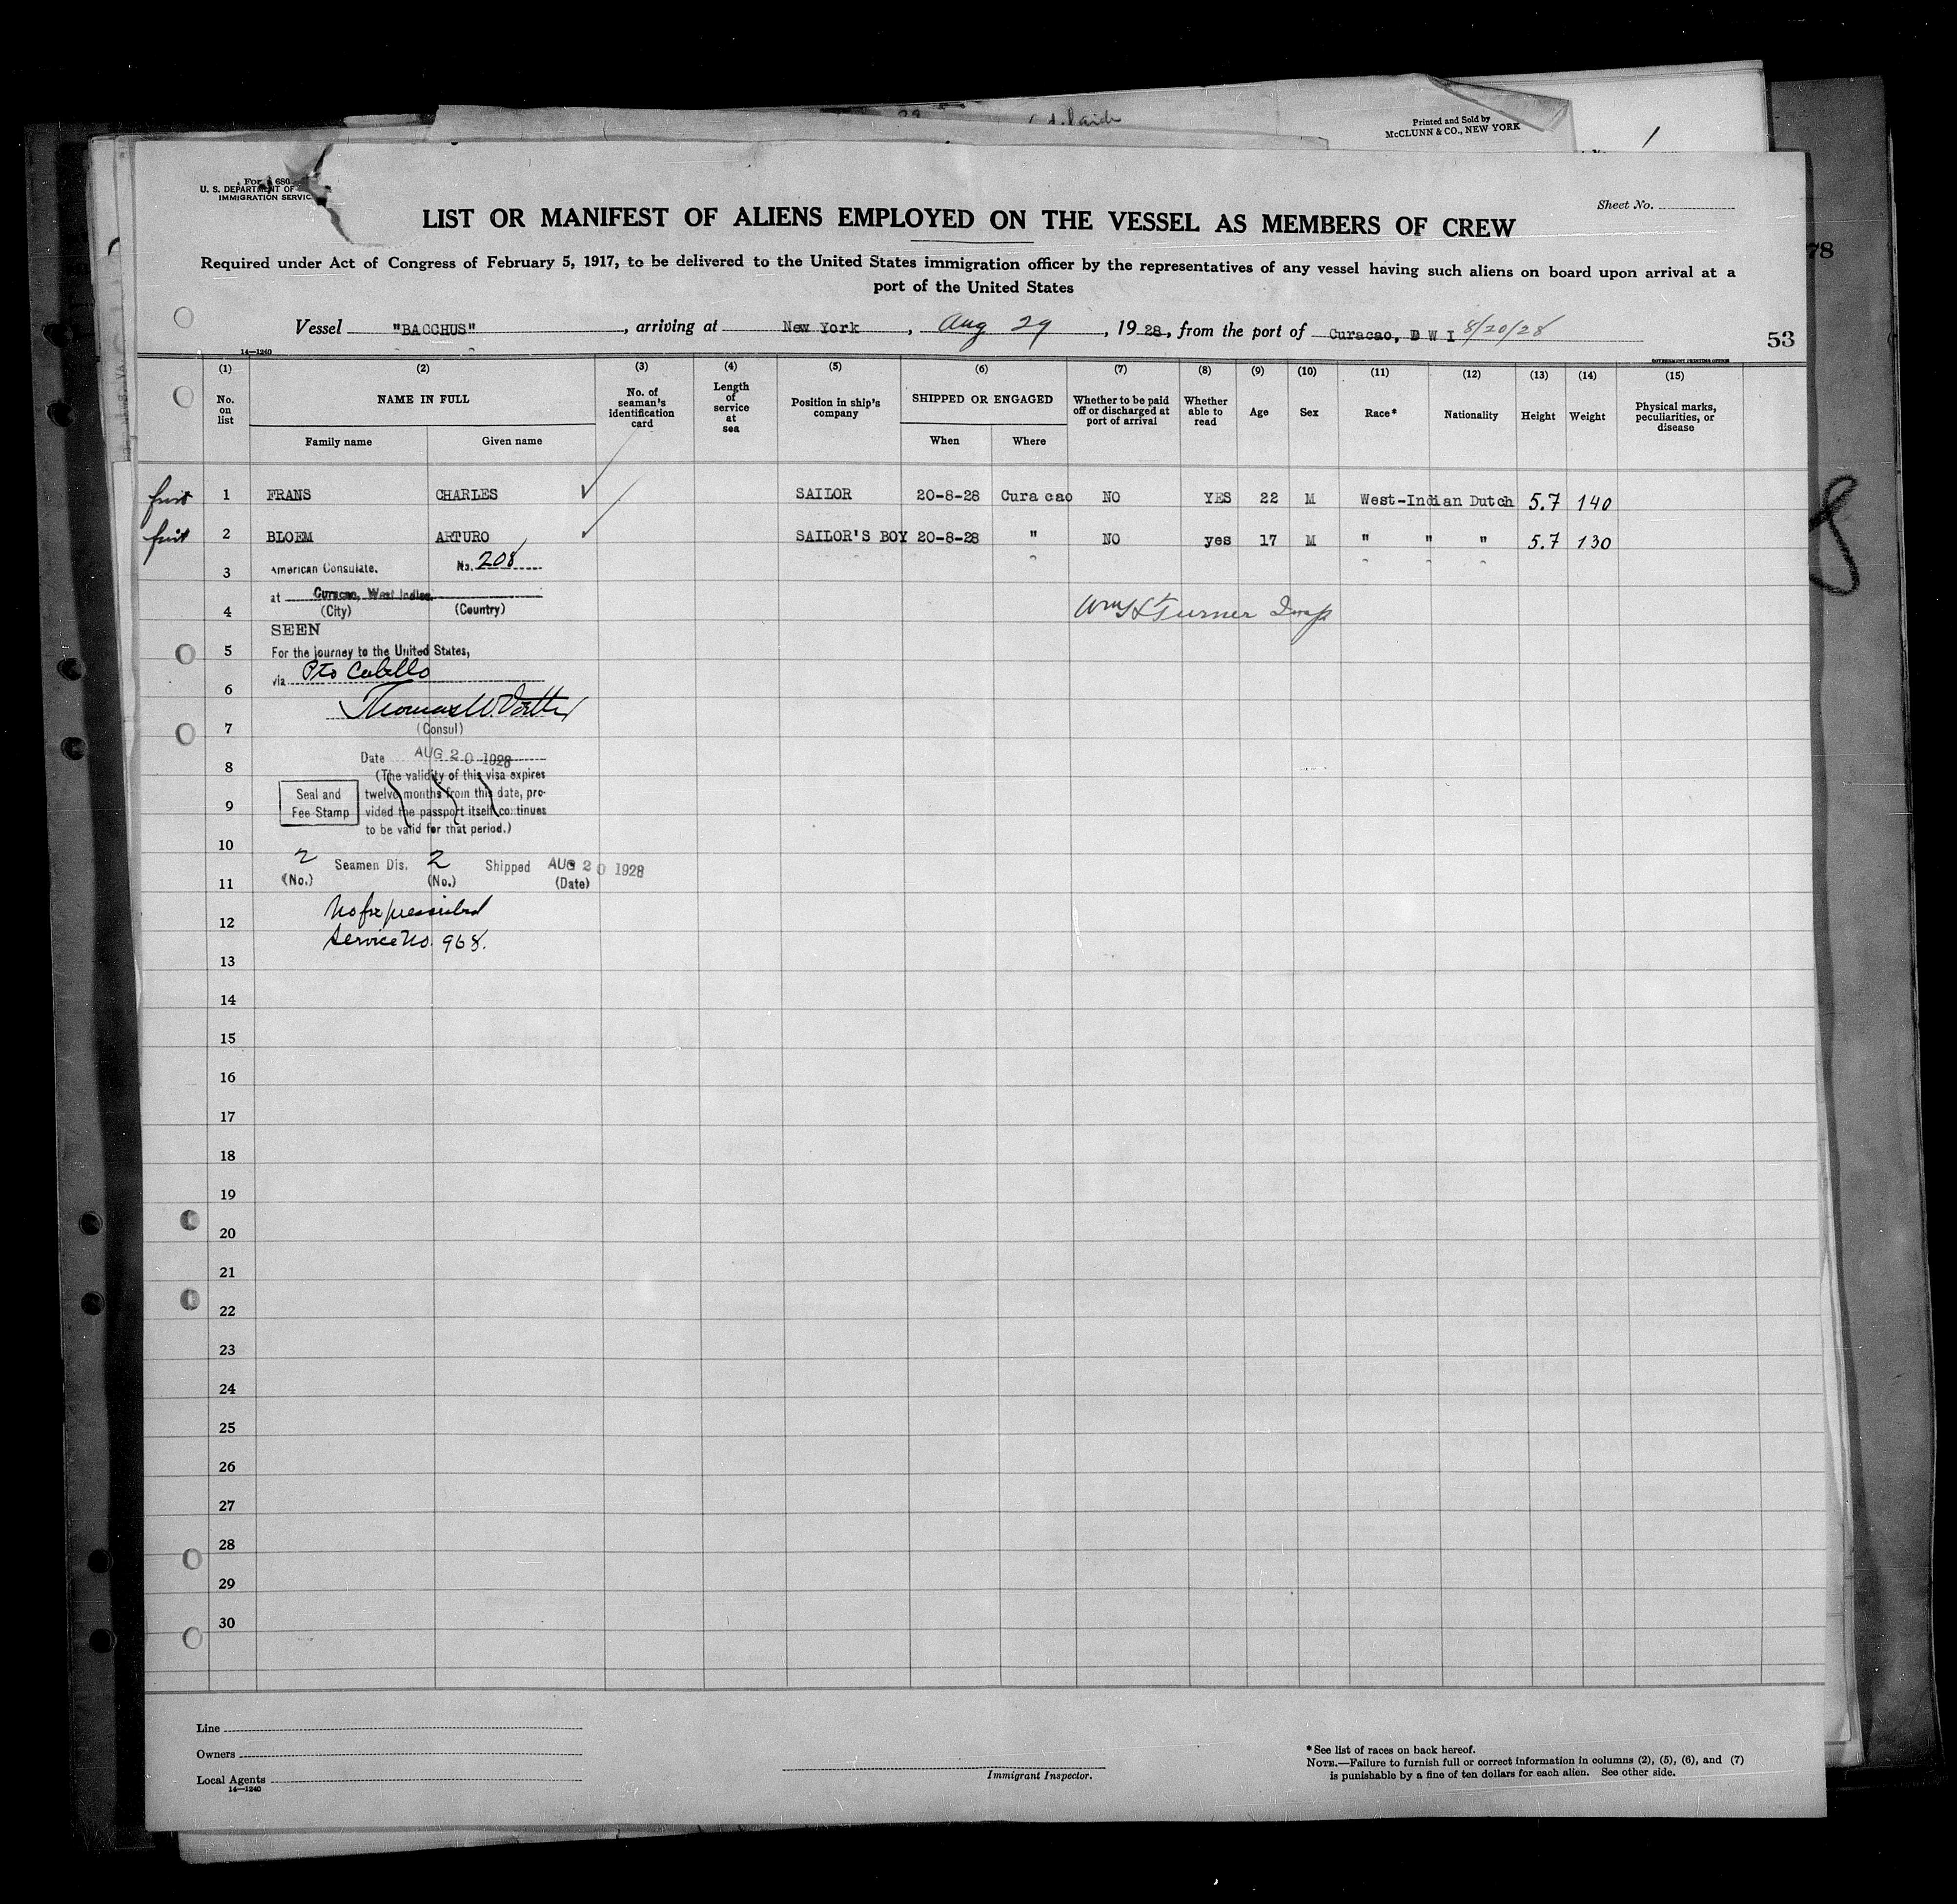 Printed and Sold by
McCLUNN & CO., NEW YORK
1
For 680
U. S. DEPARTMENT OF
IMMIGRATION SERVIC
Sheet No.
LIST OR MANIFEST OF ALIENS EMPLOYED ON THE VESSEL AS MEMBERS OF CREW
78
Required under Act of Congress of February 5, 1917, to be delivered to the United States immigration officer by the representatives of any vessel having such aliens on board upon arrival at a
port of the United States
Vessel "BACCHUS", arriving at New York, Aug 29, 1928, from the port of Curacao, D W I 8/20/28
53
14—1240
GOVERNMENT PRINTING OFFICE
(1) (2) (3) (4) (5) (6) (7) (8) (9) (10) (11) (12) (13) (14) (15)
No. on list NAME IN FULL No. of seaman's identification card Length of service at sea Position in ship's company SHIPPED OR ENGAGED Whether to be paid off or discharged at port of arrival Whether able to read Age Sex Race* Nationality Height Weight Physical marks, peculiarities, or disease
Family name Given name When Where
1 FRANS CHARLES SAILOR 20-8-28 Curacao NO YES 22 M West-Indian Dutch 5.7 140
2 BLOEM ARTURO SAILOR'S BOY 20-8-28 " NO yes 17 M " " " 5.7 130
3 American Consulate, No. 208
at Curacao, West Indies
4 (City) (Country)
Wm Turner Insp
SEEN
5 For the journey to the United States,
via Pto Cabello
6
Thomas W.
7 (Consul)
Date AUG 20 1928
8 (The validity of this visa expires
Seal and twelve months from this date, pro-
9 Fee Stamp vided the passport itself continues
to be valid for that period.)
10
2 Seamen Dis. 2 Shipped AUG 20 1928
11 (No.) (No.) (Date)
No fee prescribed
12
Service No. 968.
13
14
15
16
17
18
19
20
21
22
23
24
25
26
27
28
29
30
8
Line
Owners
Local Agents
14—1240
Immigrant Inspector.
* See list of races on back hereof.
NOTE.—Failure to furnish full or correct information in columns (2), (5), (6), and (7)
is punishable by a fine of ten dollars for each alien. See other side.